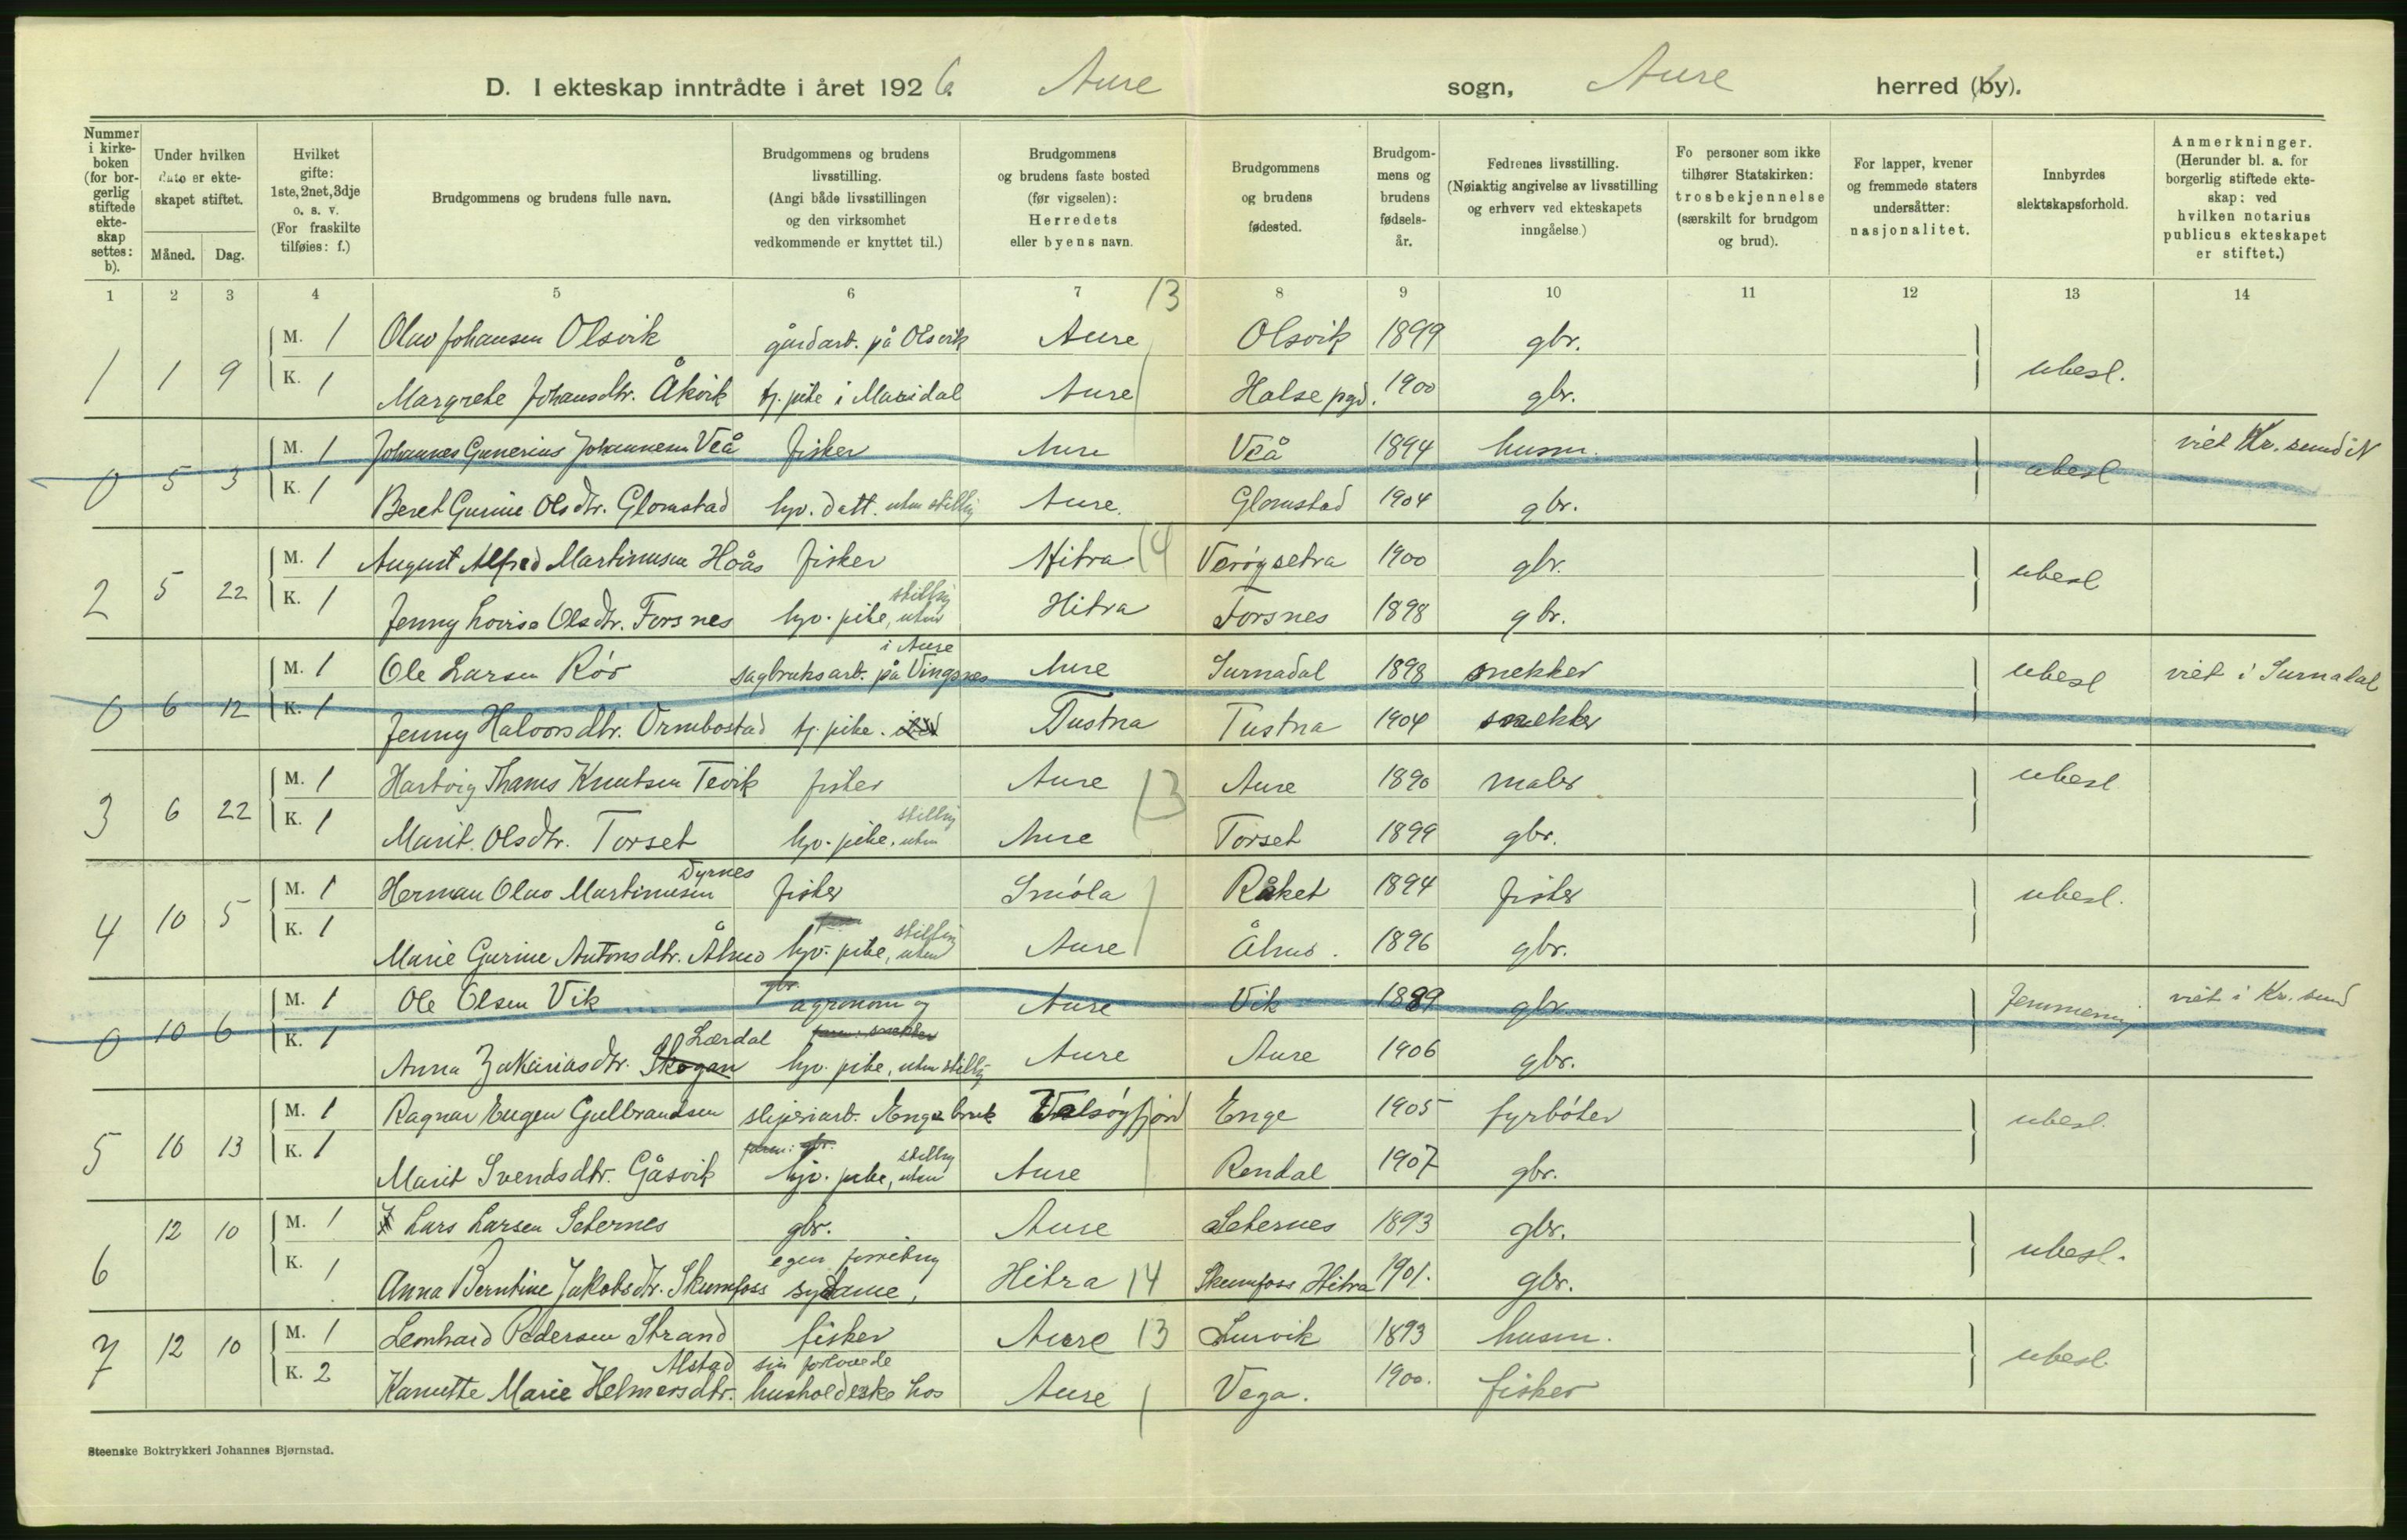 D. I ekteskap inntrådte i året 1926. Aure sogn, Aure herred (by).
Nummer i kirke-boken (for bor-gerlig stiftede ekte-skap settes: b).
Under hvilken dato er ekte-skapet stiftet.
Måned. Dag.
Hvilket gifte: 1ste, 2net, 3dje o. s. v. (For fraskilte tilføies: f.)
Brudgommens og brudens fulle navn.
Brudgommens og brudens livsstilling. (Angi både livsstillingen og den virksomhet vedkommende er knyttet til.)
Brudgommens og brudens faste bosted (før vigselen): Herredets eller byens navn.
Brudgommens og brudens fødested.
Brudgom-mens og brudens fødsels-år.
Fedrenes livsstilling. (Nøiaktig angivelse av livsstilling og erhverv ved ekteskapets inngåelse.)
Fo personer som ikke tilhører Statskirken: trosbekjennelse (særskilt for brudgom og brud).
For lapper, kvener og fremmede staters undersåtter: nasjonalitet.
Innbyrdes slektskapsforhold.
Anmerkninger. (Herunder bl. a. for borgerlig stiftede ekte-skap: ved hvilken notarius publicus ekteskapet er stiftet.)
1 2 3 4 5 6 7 13 8 9 10 11 12 13 14
M. 1 Olav Johansen Olsvik gårdarb. på Olsvik Aure Olsvik 1899 gbr.
1 1 9 K. 1 Margrete Johansdtr. Åkvik tj. pike i Mardal Aure Halse pgd. 1900 gbr. ubesl.
M. 1 Johannes Gunerius Johannesen Veå fisker Aure Veå 1894 husm. viet Kr. sund N
0 5 3 K. 1 Beret Gurine Olsdtr. Glomstad hjv. datt. uten stilling Aure. Glomstad 1904 gbr. ubesl
M. 1 August Alfred Martinusen Hoås fisker Hitra 14 Verøysetra 1900 gbr.
2 5 22 K. 1 Jenny Lovise Olsdtr. Forsnes hjv. pike, uten stilling Hitra Forsnes 1898 gbr. ubesl
M. 1 Ole Larsen Rör sagbruksarb. på Vingsnes i Aure Aure Surnadal 1898 snekker ubesl viet i Surnadal
0 6 12 K. 1 Jenny Halvorsdtr. Ormbostad tj. pike. Tustna Tustna 1904 snekker
M. 1 Hartvig Thams Knutsen Tevik fisker Aure 13 Aure 1890 maler ubesl
3 6 22 K. 1 Marit Olsdtr. Torset hjv. pike, uten stilling Aure Torset 1899 gbr.
M. 1 Herman Olav Martinusen Dyrnes fisker Smöla Råket 1894 fisker ubesl.
4 10 5 K. 1 Marie Gurine Antonsdtr. Ålmo hjv. pike, uten stilling Aure 1896 gbr.
M. 1 Ole Olsen Vik agronom og gbr. Aure Vik 1889 gbr. viet i Kr. sund
0 10 6 K. 1 Anna Zakariasdtr. Skogan Lærdal hjv. pike, uten stilling Aure Aure 1906 gbr.
M. 1 Ragnar Eugen Gulbrandsen sliperiarb. Enge bruk Valsøyfjord Enge 1905 fyrböter
5 10 13 K. 1 Marit Svendsdtr. Gåsvik hjv. pike, uten stilling Aure Rendal 1907 gbr. ubesl.
12 10 M. 1 Lars Larsen Seternes gbr. Aure Seternes 1893 gbr.
6 K. 1 Anna Berntine Jakobsdtr. Skumfoss sydame, egen forretning Hitra 14 Skumfoss Hitra 1901. gbr. ubesl.
M. 1 Leonhard Pedersen Strand fisker Aure 13 Survik 1893 husm.
7 12 10 K. 2 Kanutte Marie Helmersdtr. Alstad husholderske hos sin forlovede Aure Vega. 1900. fisker ubesl.
Steenske Boktrykkeri Johannes Bjørnstad.